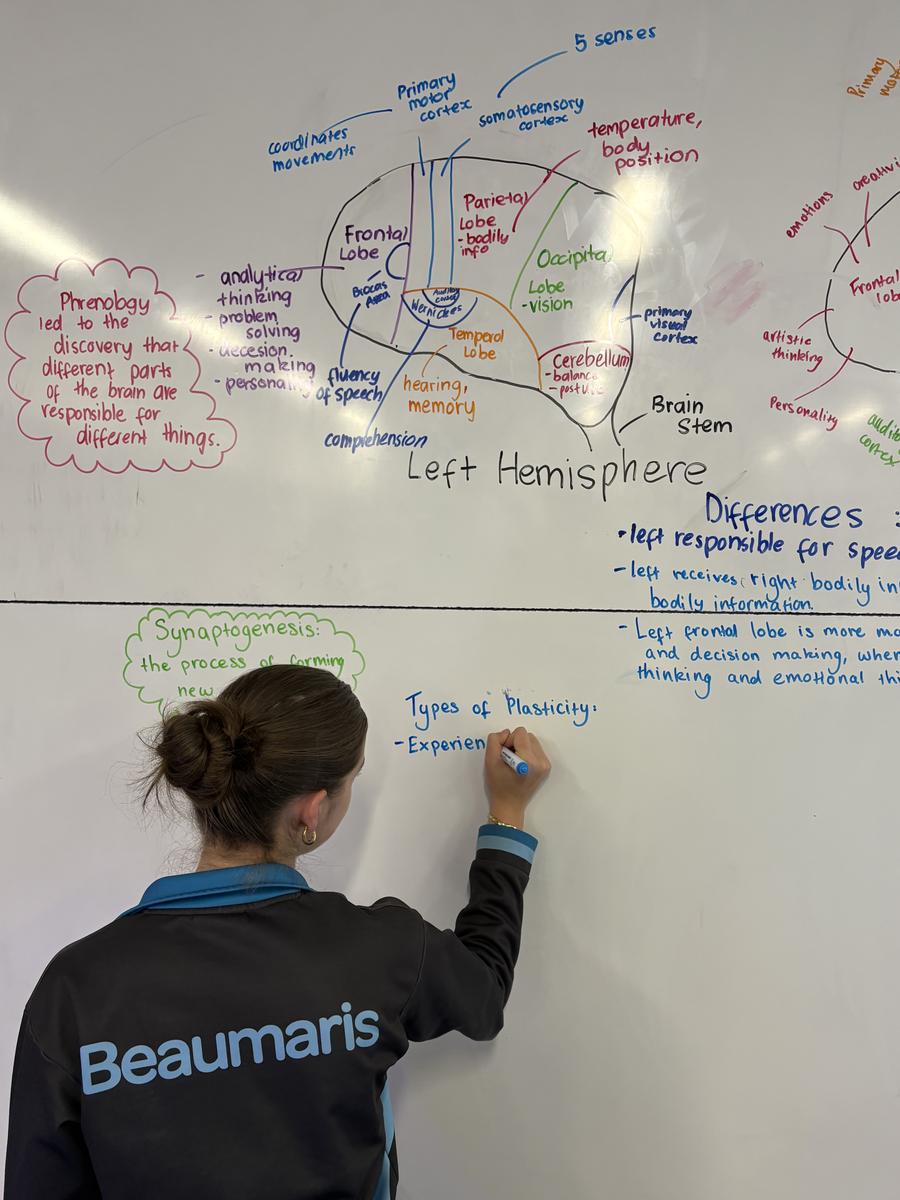 5 senses
Primary
motor
cortex
somatosensory
cortex
coordinates
movements
temperature,
body
position
Primary
emotions
Parietal
Lobe
- bodily
info
Frontal
Lobe
Occipital
Lobe
- vision
- analytical
thinking
- problem
solving
- decesion
making
- personality
Brocas
Area
Auditory
cortex
Wernickes
Temporal
Lobe
primary
visual
cortex
Cerebellum
- balance
- posture
fluency
of speech
hearing,
memory
comprehension
Brain
Stem
Left Hemisphere
Phrenology
led to the
discovery that
different parts
of the brain are
responsible for
different things.
Frontal
artistic
thinking
Personality
cortex
Differences :
• left responsible for
- left receives right bodily
bodily information.
- Left frontal lobe is more
and decision making,
thinking and emotional
Synaptogenesis:
the process of forming
new
Types of Plasticity:
- Experien
Beaumaris